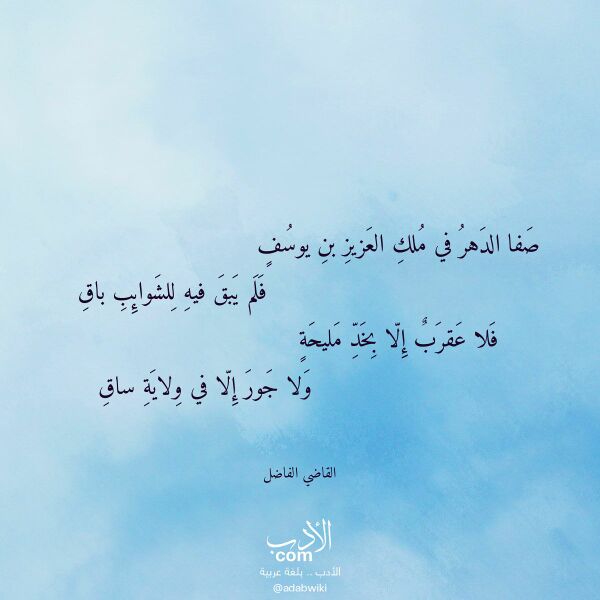 صَفا الدَهرُ في مُلكِ العَزيزِ بنِ يوسُفٍ
فَلَم يَبقَ فيهِ لِلشَوائِبِ باقِ
فَلا عَقرَبٌ إِلّا بِخَدِّ مَليحَةٍ
وَلا جَورَ إِلّا في وِلايَةِ ساقِ
القاضي الفاضل
الأدب
com
الأدب .. بلغة عربية
@adabwiki